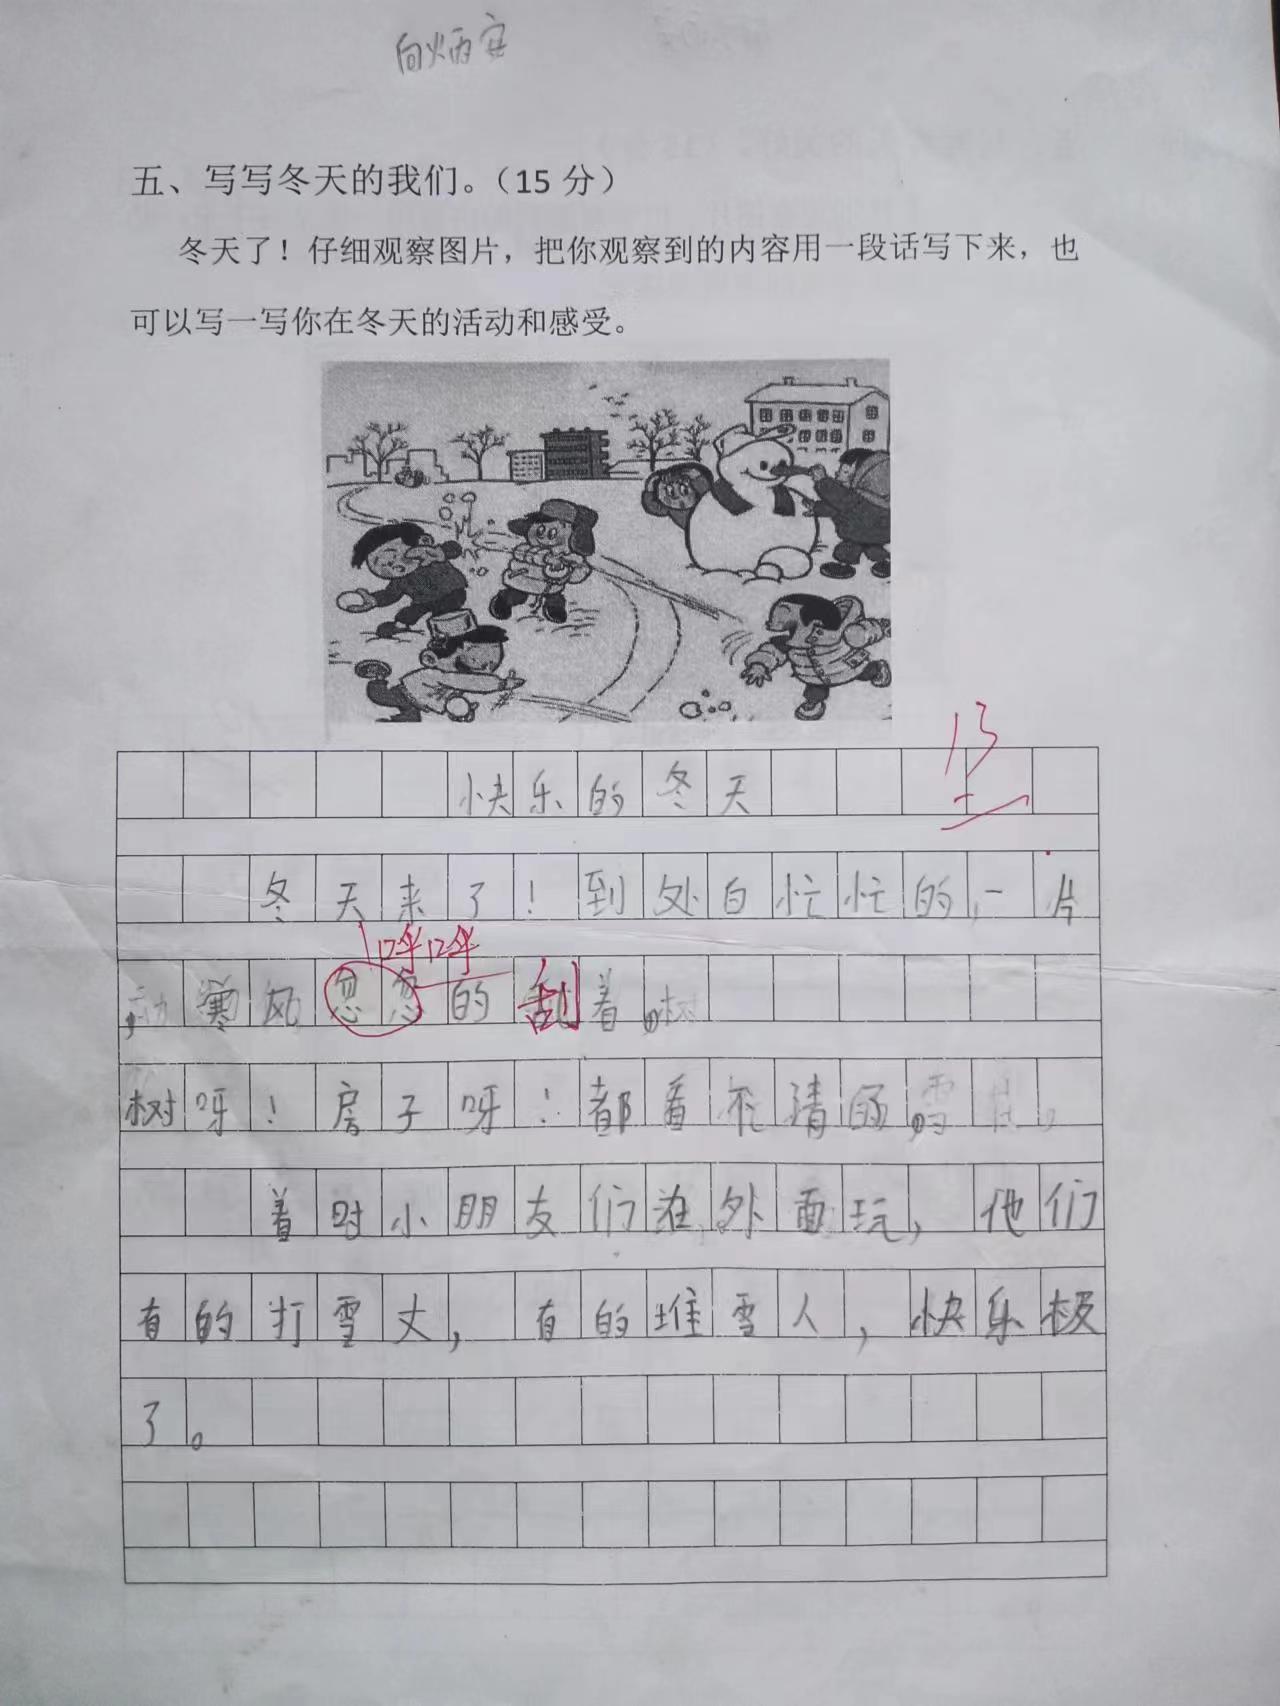 向炳安
五、写写冬天的我们。（15 分）
冬天了！仔细观察图片，把你观察到的内容用一段话写下来，也
可以写一写你在冬天的活动和感受。
13
快乐的冬天
冬天来了！到处白忙忙的，一片
呼呼
，寒风忽忽的刮着，树
树呀！房子呀！都看不清
着时小朋友们在外面玩，他们
有的打雪丈，有的堆雪人，快乐极
了。